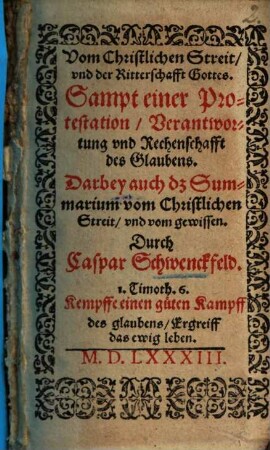 2.
Vom Christlichen Streit/
vnd der Ritterschafft Gottes.
Sampt einer Pro-
testation / Verantwor-
tung vnd Rechenschafft
des Glaubens.
Darbey auch dz Sum-
marium vom Christlichen
Streit/ vnd vom gewissen.
Durch
Caspar Schwenckfeld.
1. Timoth. 6.
Kempffe einen guten Kampff
des glaubens/ Ergreiff
das ewig leben.
M. D. LXXXIII.